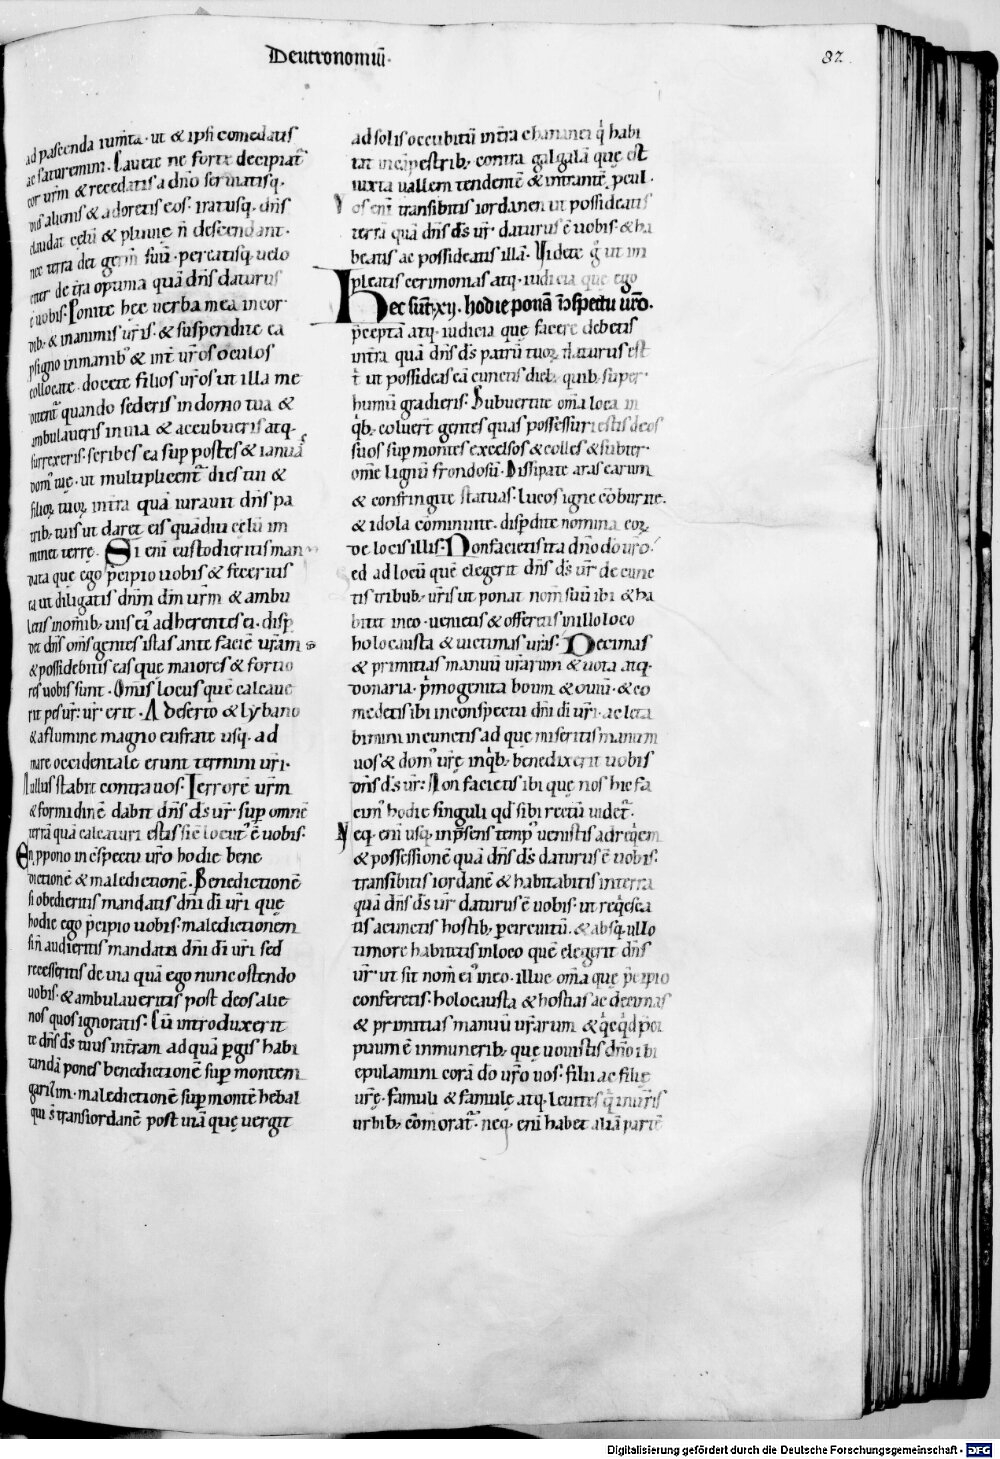 Deutronomiū·
82
ad pascenda iumēta· ut & ipsi comedatis
ac saturemini· Cauete ne forte decipiat̄
cor ur̄m & recedatis a dn̄o seruiatisq;
diis alienis & adoretis eos· iratusq; dn̄s
claudat cęlū & pluuię n̄ descendant·
nec terra det germ̄ suū· pereatisq; uelo
citer de t̄ra optuma quā dn̄s daturus
ē uobis· Ponite hęc uerba mea in cor
dib; & in animis ur̄is· & suspendite ea
p signo in manib; & int̄ ur̄os oculos
collocate· docete filios ur̄os ut illa me
ditent̄ quando sederis in domo tua &
ambulaueris in uia & accubueris atq;
surrexeris· scribes ea sup postes & ianuā
dom' tuę· ut multiplicent̄ dies tui &
filioꝝ tuoꝝ in t̄ra quā iurauit dn̄s pa
trib; tuis ut daret eis quādiu cęlū im
minet terrę· Si eni custodieritis man
data que ego p̄cipio uobis & feceritis
ea ut diligatis dn̄m dm̄ ur̄m & ambu
letis in om̄ib; uiis ei' adherentes ei· disp
det dn̄s om̄s gentes istas ante faciē ur̄am
& possidebitis eas quę maiores & fortio
res uobis sunt· Om̄is locus quē calcaue
rit pes ur̄· ur̄ erit· A deserto & lybano
& a flumine magno eufrate usq; ad
mare occidentale erunt termini ur̄i·
Nullus stabit contra uos· Terrorē ur̄m
& formidinē dabit dn̄s ds̄ ur̄ sup omnē
terrā quā calcaturi estis sic̄ locut' ē uobis·
En ppono in c̄spectu ur̄o hodie bene
dictionē & maledictionē· Benedictionē
si obedieritis mandatis dn̄i di̅ ur̄i que
hodie ego p̄cipio uobis· maledictionem
si n̄ audieritis mandata dn̄i di̅ ur̄i sed
recesseritis de uia quā ego nunc ostendo
uobis· & ambulaueritis post deos alie
nos quos ignoratis· Cū introduxerit
te dn̄s ds̄ tuus in t̄ram ad quā pgis habi
tandā pones benedictionē sup montem
garizim· maledictionē sup montē hebal
qui s̄ trans iordanē post uiā quę uergit
ad solis occubitū in t̄ra chananei q̄ habi
tat in cāpestrib; contra galgalā quę est
iuxta uallem tendentē & intrantē pcul·
Vos enī transibitis iordanen ut possideatis
terrā quā dn̄s ds̄ ur̄ daturus ē uobis & ha
beatis ac possideatis illā· Videte g̊ ut im
pleatis cerimonias atq; iudicia que ego
Hec sūt· xij· hodie ponā ī ɔspectu ur̄o·
p̄cepta atq; iudicia que facere debetis
in t̄ra quā dn̄s ds̄ patrū tuoꝝ daturus est
t̄ ut possideas eā cunctis dieb; quib; super
humū gradieris· Subuertite om̄ia loca in
q̄b; coluer̄t gentes quas possessuri estis deos
suos sup montes excelsos & colles & subter
om̄e lignū frondosū· Dissipate aras earum
& confringite statuas· lucos igne cōburite·
& idola cōminuite· dispdite nomina eoꝝ
de locis illis· Non facietis ita dn̄o do̅ ur̄o·
sed ad locū quē elegerit dn̄s ds̄ ur̄ de cunc
tis tribub; ur̄is ut ponat nom̄ suū ibi & ha
bitet in eo· uenietis & offeretis in illo loco
holocausta & uictimas ur̄as· Decimas
& primitias manuū ur̄arum & uota atq;
donaria· p̄mogenita boum & ouiū· & co
medetis ibi in conspectu dn̄i di̅ ur̄i· ac leta
bimini in cunctis ad que miseritis manum
uos & dom' ur̄ę in q̄b; benedixerit uobis
dn̄s ds̄ ur̄· Non facietis ibi quę nos hic fa
cim' hodie singuli qd̄ sibi rectū uidet̄·
Neq; enī usq; in p̄sens temp' uenistis ad req̄em
& possessionē quā dn̄s ds̄ daturus ē uobis·
transibitis iordanē & habitabitis in terra
quā dn̄s ds̄ ur̄ daturus ē uobis· ut req̄esca
tis a cunctis hostib; p circuitū· & absq; ullo
timore habitetis in loco quē elegerit dn̄s
ur̄· ut sit nom̄ ei' in eo· illuc om̄ia que p̄cipio
conferetis· holocausta & hostias ac decimas
& primitias manuū ur̄arum & q̄cq̄d p̄ci
puum ē in munerib; quę uouistis dn̄o ibi
epulamini corā do̅ ur̄o uos· filii ac filię
ur̄ę· famuli & famulę atq; leuites q̄ in ur̄is
urbib; cōmorat̄· neq; enī habet aliā partē
Digitalisierung gefördert durch die Deutsche Forschungsgemeinschaft - DFG